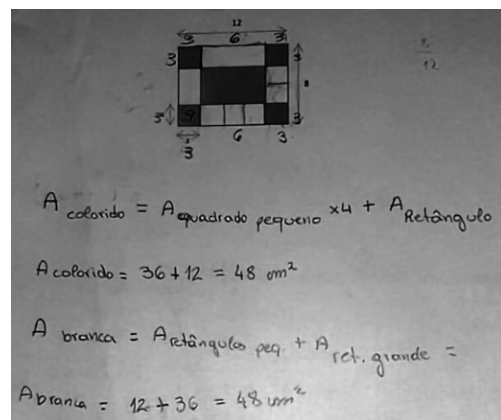 12
3 6 3
3
3 9 3
3 6 3
12
A colorido = A quadrado pequeno x4 + A Retângulo
A colorido = 36 + 12 = 48 cm²
A branca = A retângulos peq. + A ret. grande =
A branca = 12 + 36 = 48 cm²